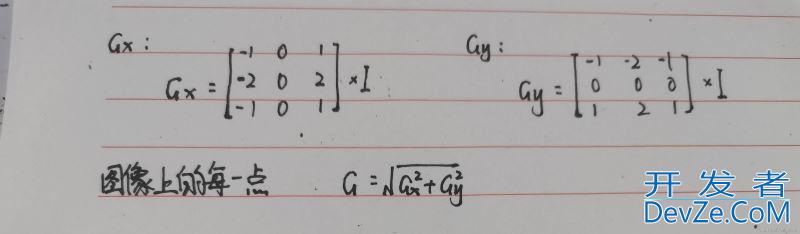 Gx: Gy:
Gx = [-1 0 1; -2 0 2; -1 0 1] × I
Gy = [-1 -2 -1; 0 0 0; 1 2 1] × I
图像上的每一点 G = √(Gx² + Gy²)
开发者
DevZe.CoM